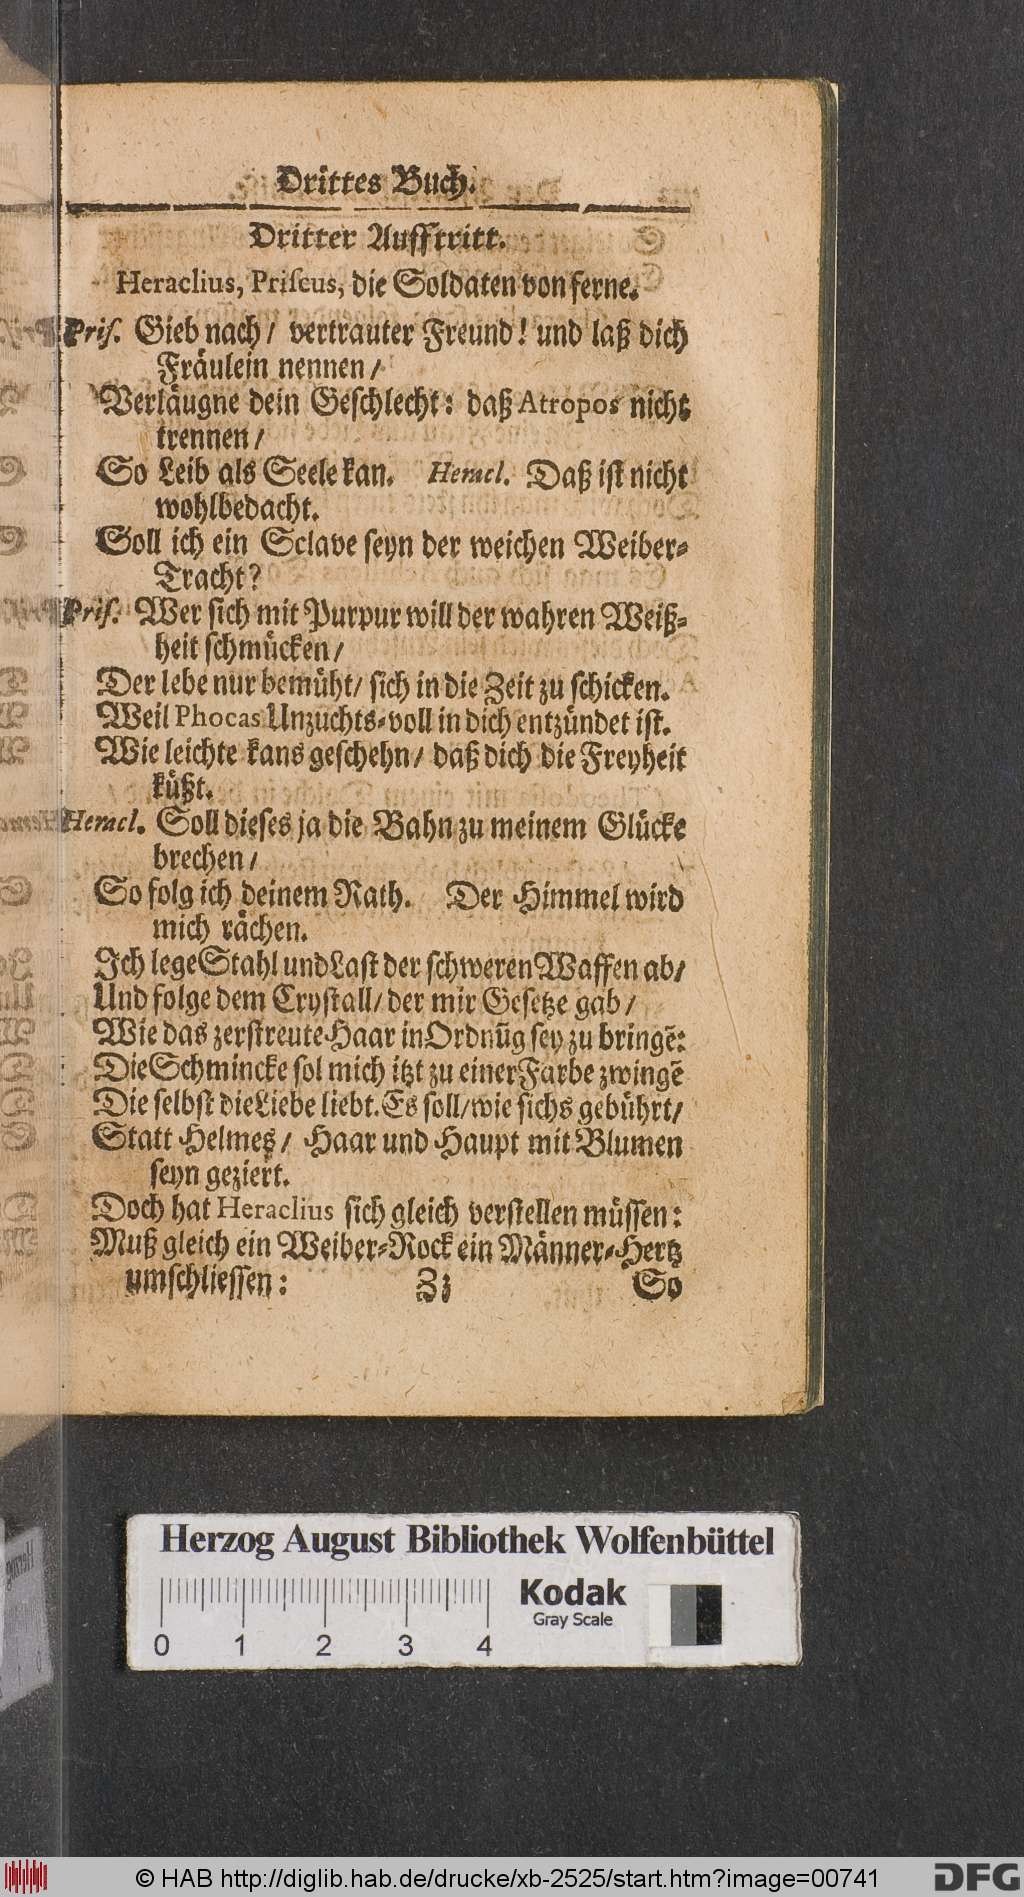 Drittes Buch.
Dritter Aufftritt.
Heraclius, Priſcus, die Soldaten von ferne.
Priſ. Gieb nach / vertrauter Freund! und laß dich
Fräulein nennen /
Verläugne dein Geſchlecht: daß Atropos nicht
trennen /
So Leib als Seele kan. Heracl. Daß iſt nicht
wohlbedacht.
Soll ich ein Sclave ſeyn der weichen Weiber-
Tracht?
Priſ. Wer ſich mit Purpur will der wahren Weiß-
heit ſchmücken /
Der lebe nur bemüht / ſich in die Zeit zu ſchicken.
Weil Phocas Unzuchts-voll in dich entzündet iſt.
Wie leichte kans geſchehn / daß dich die Freyheit
küßt.
Heracl. Soll dieſes ja die Bahn zu meinem Glücke
brechen /
So folg ich deinem Rath. Der Himmel wird
mich rächen.
Ich lege Stahl und Laſt der ſchweren Waffen ab /
Und folge dem Cryſtall / der mir Geſetze gab /
Wie das zerſtreute Haar in Ordnũg ſey zu bringẽ:
Die Schmincke ſol mich itzt zu einer Farbe zwingẽ
Die ſelbſt die Liebe liebt. Es ſoll / wie ſichs gebührt /
Statt Helmes / Haar und Haupt mit Blumen
ſeyn geziert.
Doch hat Heraclius ſich gleich verſtellen müſſen:
Muß gleich ein Weiber-Rock ein Männer-Hertz
umſchlieſſen: Zz So
Herzog August Bibliothek Wolfenbüttel
Kodak
Gray Scale
0 1 2 3 4
© HAB http://diglib.hab.de/drucke/xb-2525/start.htm?image=00741
DFG